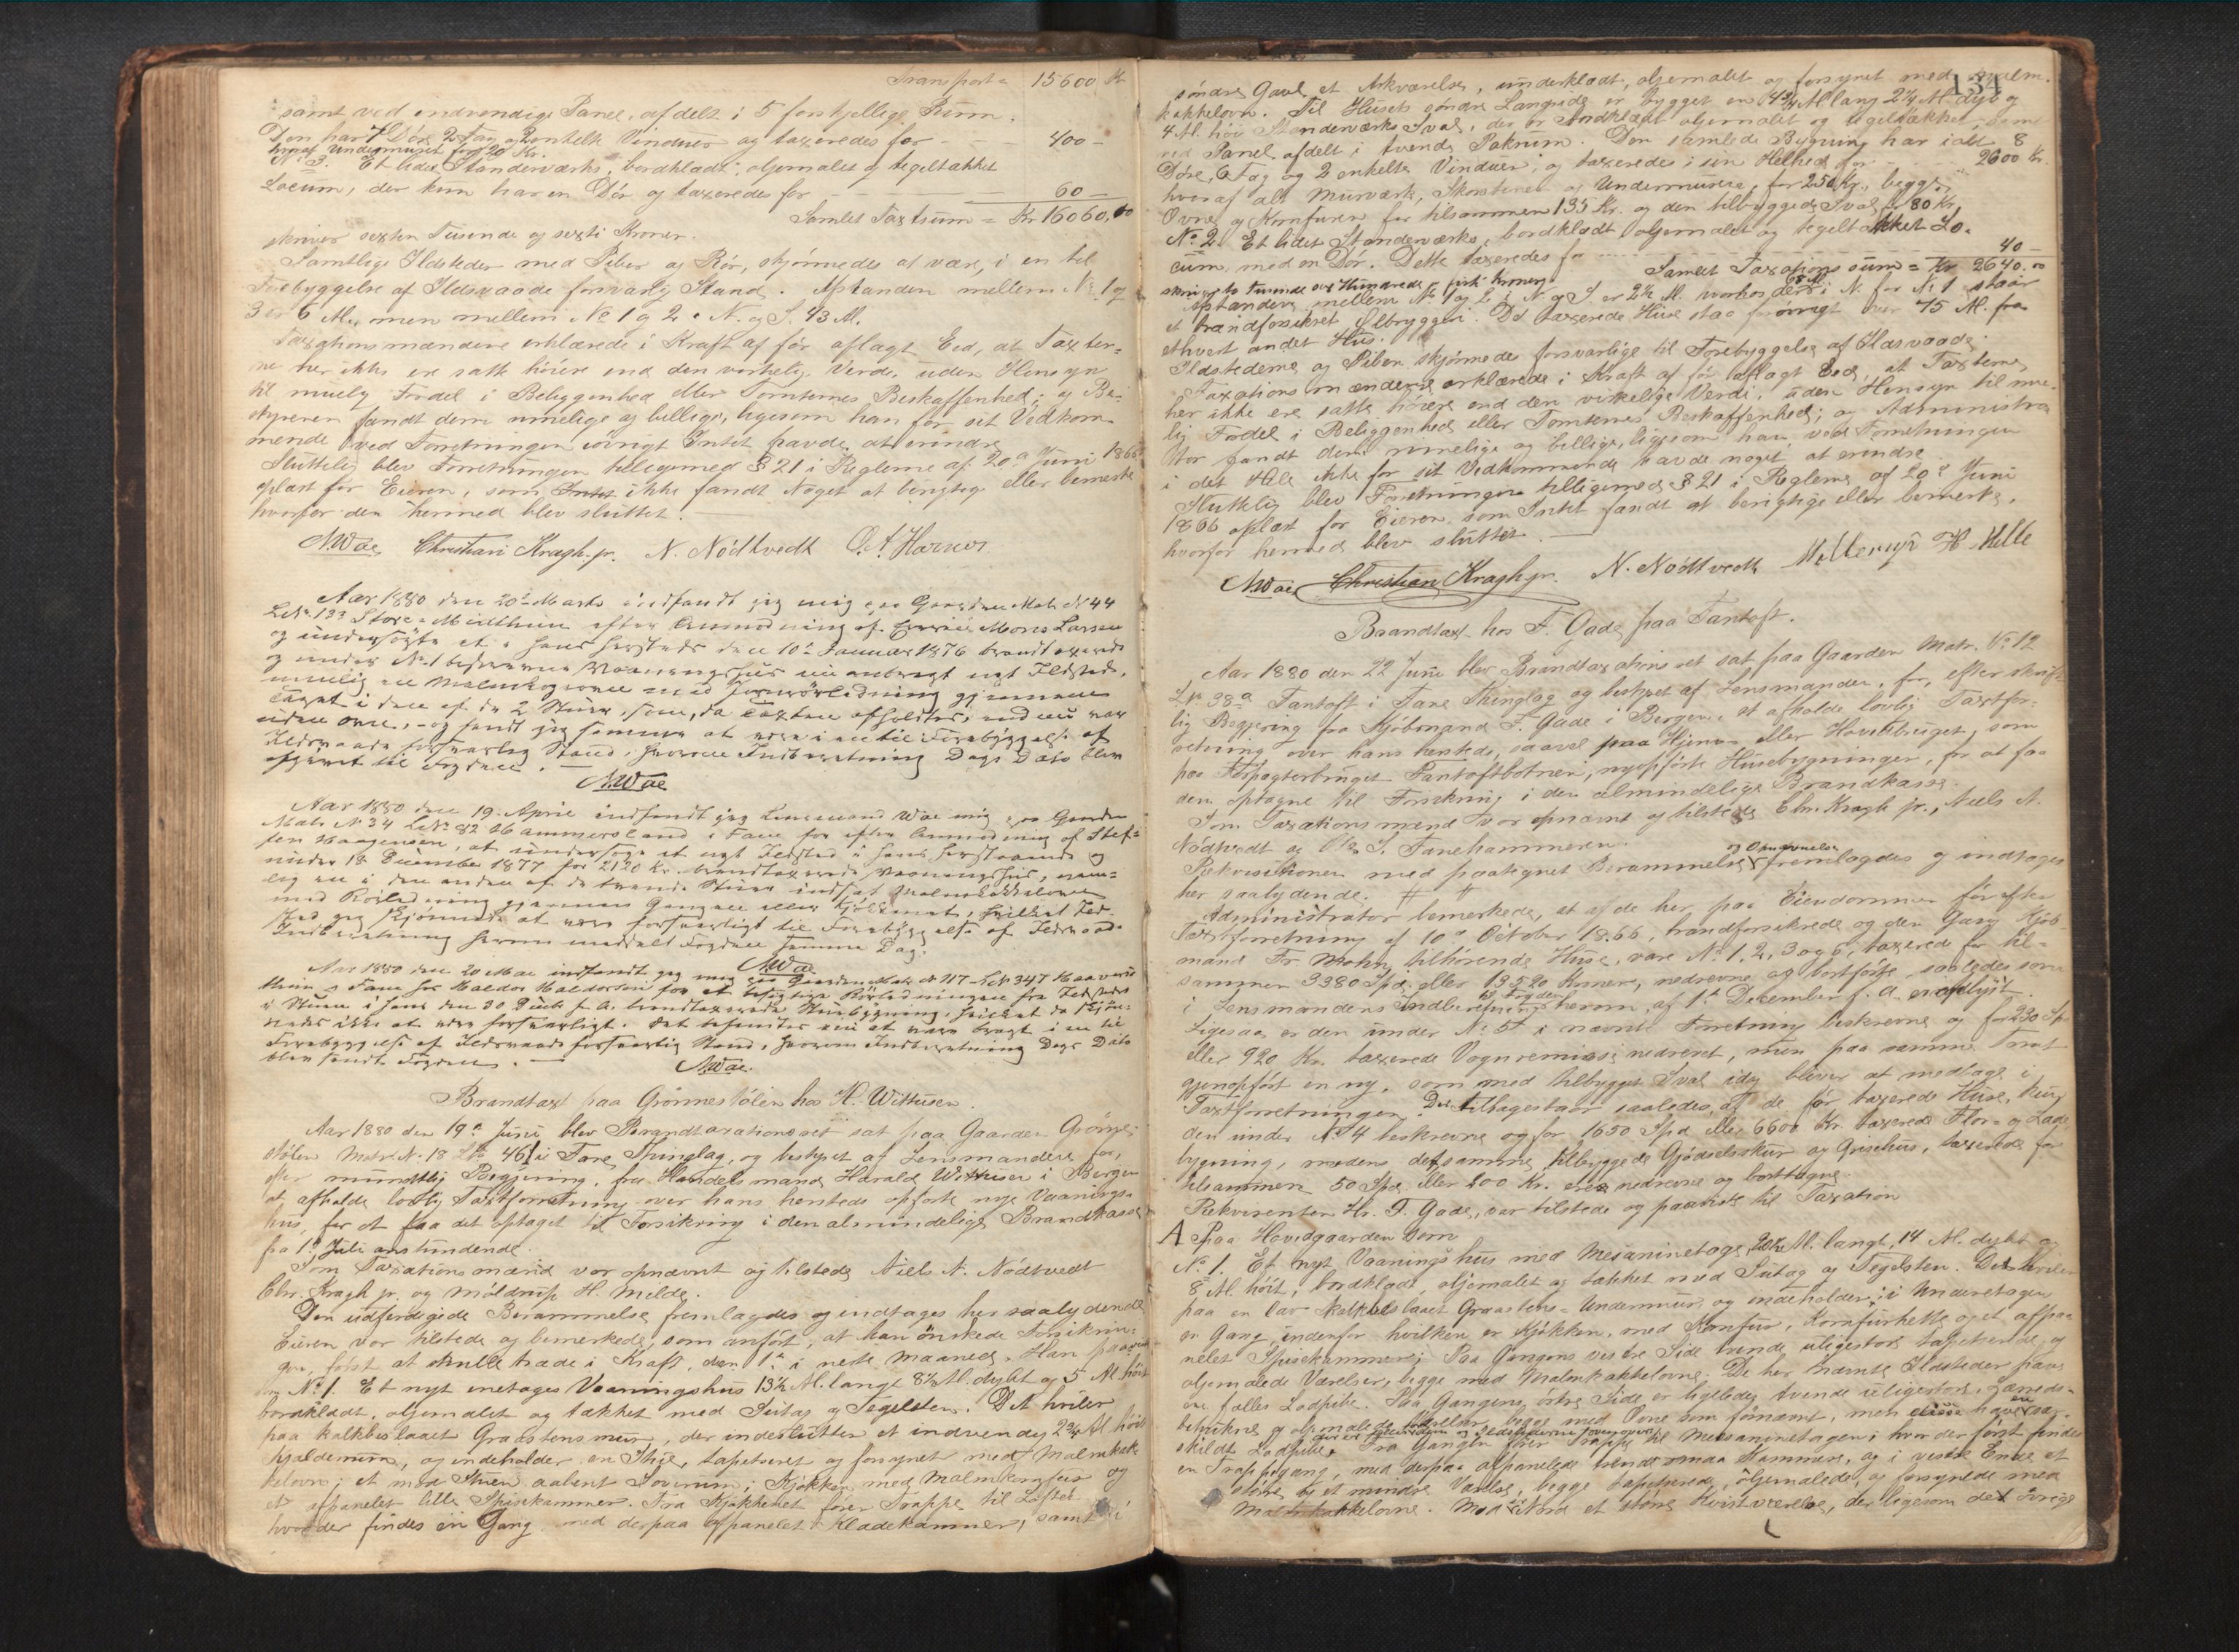 Transport = 15600 Kr
samt ved indvendige Panel, afdelt i 5 forskjellige Rum.
Den har 7 Døre 2 Fag og 2 enkelte Vinduer og taxeredes for - - - 400 -
hvoraf Undermuret for 20 Kr.
No 3. Et lidet Standerværks, bordklædt, oljemalet og tegeltakket
Locum, der kun har en Dør og taxeredes for - - - 60 -
Samlet Taxtsum = Kr 16060,00
skriver sexten Tusende og sexti Kroner.
Samtlige Ildsteder med Piber og Rør, skjønnedes at være, i en til
Forebyggelse af Ildsvaade forsvarlig Stand. Afstanden mellem No 1 og
3 er 6 Al., men mellem No 1 og 2 i N. og S. 43 Al.
Taxationsmændene erklærede i Kraft af før aflagt Eed, at Taxter-
ne her ikke er satte höiere end den virkelig Værdi, uden Hensyn
til muelig Fordel i Beliggenhed eller Tomternes Beskaffenhed; og Be-
styreren fandt dem rimelige og billige, ligesom han for sit Vedkom-
mende ved Forretningen iøvrigt Intet havde at erindre.
Sluttelig blev Forretningen tilligemed § 21 i Reglerne af 20de Juni 1866
oplæst for Eieren, som ikke fandt Noget at berigtige eller bemerke
hvorfor den hermed blev sluttet.
AWae Christian Kragh jr. N. Nödtvedt
Aar 1880 den 20de Marts indfandt jeg mig paa Gaarden Matr No 44
LNo 133 Store-Midthun efter Anmodning af Eieren Mons Larsen
og undersögte et i hans herstaaende den 10de Januar 1876 brandtaxerede
og under No 1 beskrevne Vaaningshus nu anbragt nyt Ildsted,
nemlig en Malmkogeovn med Jernrörledning gjennem
Taget i den af de 2 Stuer, som, da Taxten afholdtes, endnu var
uden Ovn, - og fandt jeg samme at være i en til Forebyggelse af
Ildsvaade forsvarlig Stand, hvorom Indberetning Dags Dato blev
afgivet til Fogden.
AWae
Aar 1880 den 19. April indfandt jeg Lensmand Wae mig paa Gaarden
Matr No 34 LNo 82 Hammersland i Fane for efter Anmodning af Stef-
fen Haagensen, at undersøge et nyt Ildsted i hans herstaaende og
under 18 December 1877 for 2120 Kr. brandtaxerede Vaaningshus, nem-
lig en i den anden af de tvende Stuer indsat Malmkakkelovn
med Rörledning gjennem Gangen eller Kjökkenet, hvilket Ild-
sted jeg skjönnede at være forsvarligt til Forebyggelse af Ildsvaade.
Indberetning herom meddelt Fogden samme Dag.
AWae
Aar 1880 den 20 Mai indfandt jeg mig paa Gaarden Matr No 117 LNo 347
i Fane hos Haldor Haldorsen for at besigtige Rörledningen fra Ildstedet
i Stuen i hans den 30 f. A. brandtaxerede Stuebygning, hvilket da skjön-
nedes ikke at være forsvarligt. Det befandtes nu at være bragt i en til
Forebyggelse af Ildsvaade forsvarlig Stand, hvorom Indberetning Dags Dato
blev sendt Fogden.
AWae.
Brandtaxt paa Grønnestølen hos H. Withusen.
Aar 1880 den 19de Juni blev Brandtaxationsret sat paa Gaarden Grønne-
stølen Matr. N. 18 LNo 46 i Fane Thinglag, og bestyret af Lensmanden for,
efter mundtlig Begjering, fra Handelsmand Harald Withusen i Bergen
at afholde lovlig Taxtforretning over hans hersteds opførte nye Vaanings-
hus, for at faa det optaget til Forsikring i den almindelige Brandkasse
fra 1ste Juli anstundende.
Som Taxationsmænd var opnævnt og tilstede Niels N. Nödtvedt
Chr. Kragh jr. og Möldrup H. Milde.
Den udferdigede Berammelse fremlagdes og indtages her saalydende
Eieren var tilstede og bemerkede, som anført, at han önskede Forsikrin-
gen, först at skulle træde i Kraft, den 1ste i neste Maaned. Han paaviste
No 1. Et nyt enetages Vaaningshus 13½ Al. langt 8½ Al. dybt og 5 Al. höit
bordklædt, oljemalet og takket med Sutag og Tegelsten. Det hviler
paa kalkbeslaaet Graastensmur, der indeslutter et indvendig 2¾ Al. höit
Kjælderrum, og indeholder en Stue, tapetseret og forsynet med Malmkak-
kelovn; et mod Stuen aabent Soverum; Kjøkken med Malmkomfur og
et afpanelet lille Spisekammer. Fra Kjøkkenet fører Trappe til Loftet
hvor der findes en Gang med derpaa afpanelet Klædekammer, samt i
134
søndre Gavl et Arkværelse, underklædt, oljemalet og forsynet med Malm-
kakkelovn. Til Husets søndre Langside er bygget en 4¾ Al. lang 2¼ Al. dyb og
4 Al. höi Standerværks Sval, der er bordklædt oljemalet og tegeltakket samt
ved Panel afdelt i tvende Pakrum. Den samlede Bygning har ialt 8
Døre, 6 Fag og 2 enkelte Vinduer, og taxeredes i sin Helhed for - - 2600 Kr.
hvoraf alt Murværk, Skorstene og Undermurene, for 250 Kr., begge
Ovne og Komfuren for tilsammen 135 Kr. og den tilbyggede Sval for 80 Kr.
No 2. Et lidet Standerværks, bordklædt oljemalet og tegeltakket Lo-
cum, med en Dør. Dette taxeredes for - - - 40 -
Samlet Taxationssum = Kr 2640.00
skriver to Tusende sex Hundrede og firti Kroner.
Afstanden mellem No 1 og 2 i N. og S. er 2½ Al. hvorhos der i N. for No 1 staar
et brandforsikret Ølbryggeri. De taxerede Huse staa forövrigt over 75 Al. fra
ethvert andet Hus.
Ildstederne og Piben skjønnedes forsvarlige til Forebyggelse af Ildsvaade.
Taxationsmændene erklærede i Kraft af før aflagt Eed, at Taxterne
her ikke ere satte høiere end den virkelige Verdi, uden Hensyn til mue-
lig Fordel i Beliggenhed eller Tomternes Beskaffenhed; og Administra-
tor fandt dem rimelige og billige, ligesom han ved Forretningen
i det Hele ikke for sit Vedkommende havde noget at erindre.
Sluttelig blev Forretningen tilligemed § 21 i Reglerne af 20de Juni
1866 oplæst for Eieren som Intet fandt at berigtige eller bemerke,
hvorfor hermed blev sluttet.
AWae Christian Kragh jr. N. Nödtvedt H. Milde
Brandtaxt hos F. Gade paa Fantoft.
Aar 1880 den 22 Juni blev Brandtaxations ret sat paa Gaarden Matr. No 12
LNo 38a Fantoft i Fane Thinglag og bestyret af Lensmanden, for, efter skrift-
lig Begjering fra Kjøbmand F. Gade i Bergen, at afholde lovlig Taxtfor-
retning over hans hersteds, saavel paa Hjem- eller Hovedbruget, som
paa Forpagterbruget Fantoftbotnen, nyopførte Husebygninger, for at faa
dem optagne til Forsikring i den almindelige Brandkasse.
Som Taxationsmænd var opnævnt og tilstede Chr. Kragh jr., Niels N.
Nødtvedt og Ole S. Fanehammeren.
Rekvisitionen med paategnet Berammelse og Opnævnelse fremlagdes og indtages
her saalydende. # #
Administrator bemerkede, at af de her paa Eiendommen før efter
Taxtforretning af 10de October 1866, brandforsikrede og den Gang Kjøb-
mand Fr. Mohn tilhørende Huse, vare No 1, 2, 3 og 6, taxerede for til-
sammen 3380 Spd. eller 13520 Kroner, nedrevne og bortførte, saaledes som
i Lensmandens Indberetning til Fogden herom af 1ste December f. A. er oplyst.
Ligesaa er den under No 5 i nævnte Forretning beskrevne og for 230 Spd.
eller 920 Kr. taxerede Vognremisse nedrevet, men paa samme Tomt
gjenopført en ny, som med tilbygget Sval idag bliver at medtage i
Taxtforretningen. Der tilbagestaar saaledes, af de før taxerede Huse, kun
den under No 4 beskrevne og for 1650 Spd. eller 6600 Kr. taxerede Flor- og Lade-
bygning, medens det samme tilbyggede Gjødselsskur og Grisehus, taxerede for
tilsammen 50 Spd. eller 200 Kr. ere nedrevne og borttagne.
Rekvirenten Hr. F. Gade, var tilstede og paaviste til Taxation
A Paa Hovedgaarden som
No 1. Et nyt Vaaningshus med Mesaninetage, Al. langt, 14 Al. dybt og
8 Al. höit, bordklædt, oljemalet og takket med Sutag og Tegelsten. Det hviler
paa en lav kalkbeslaaet Graastens-Undermur, og indeholder: i Underetagen
en Gang, indenfor hvilken er Kjøkken, med Komfur, Komfurhette og et afpa-
nelet Spisekammer; Paa Gangens vestre Side tvende uligestore tapetserede og
oljemalede Værelser, begge med Malmkakkelovne. De her nævnte Ildsteder have
en fælles Lodpibe. Paa Gangens østre Side er ligeledes tvende uligestore,
og oljemalede Værelser, begge med Ovne som förnævnt, men disse have en sær-
skilt Lodpibe. Fra Gangen fører Trappe til Mesaninetagen, hvor der først findes
en Trappegang, med derpaa afpanelede tvende smaa Kammere, og i vestre Ende et
større og et mindre Værelse, begge tapetserede, oljemalede og forsynede med
Malmkakkelovne. Mod Nord et större Kvistværelse, der ligesom det övrige